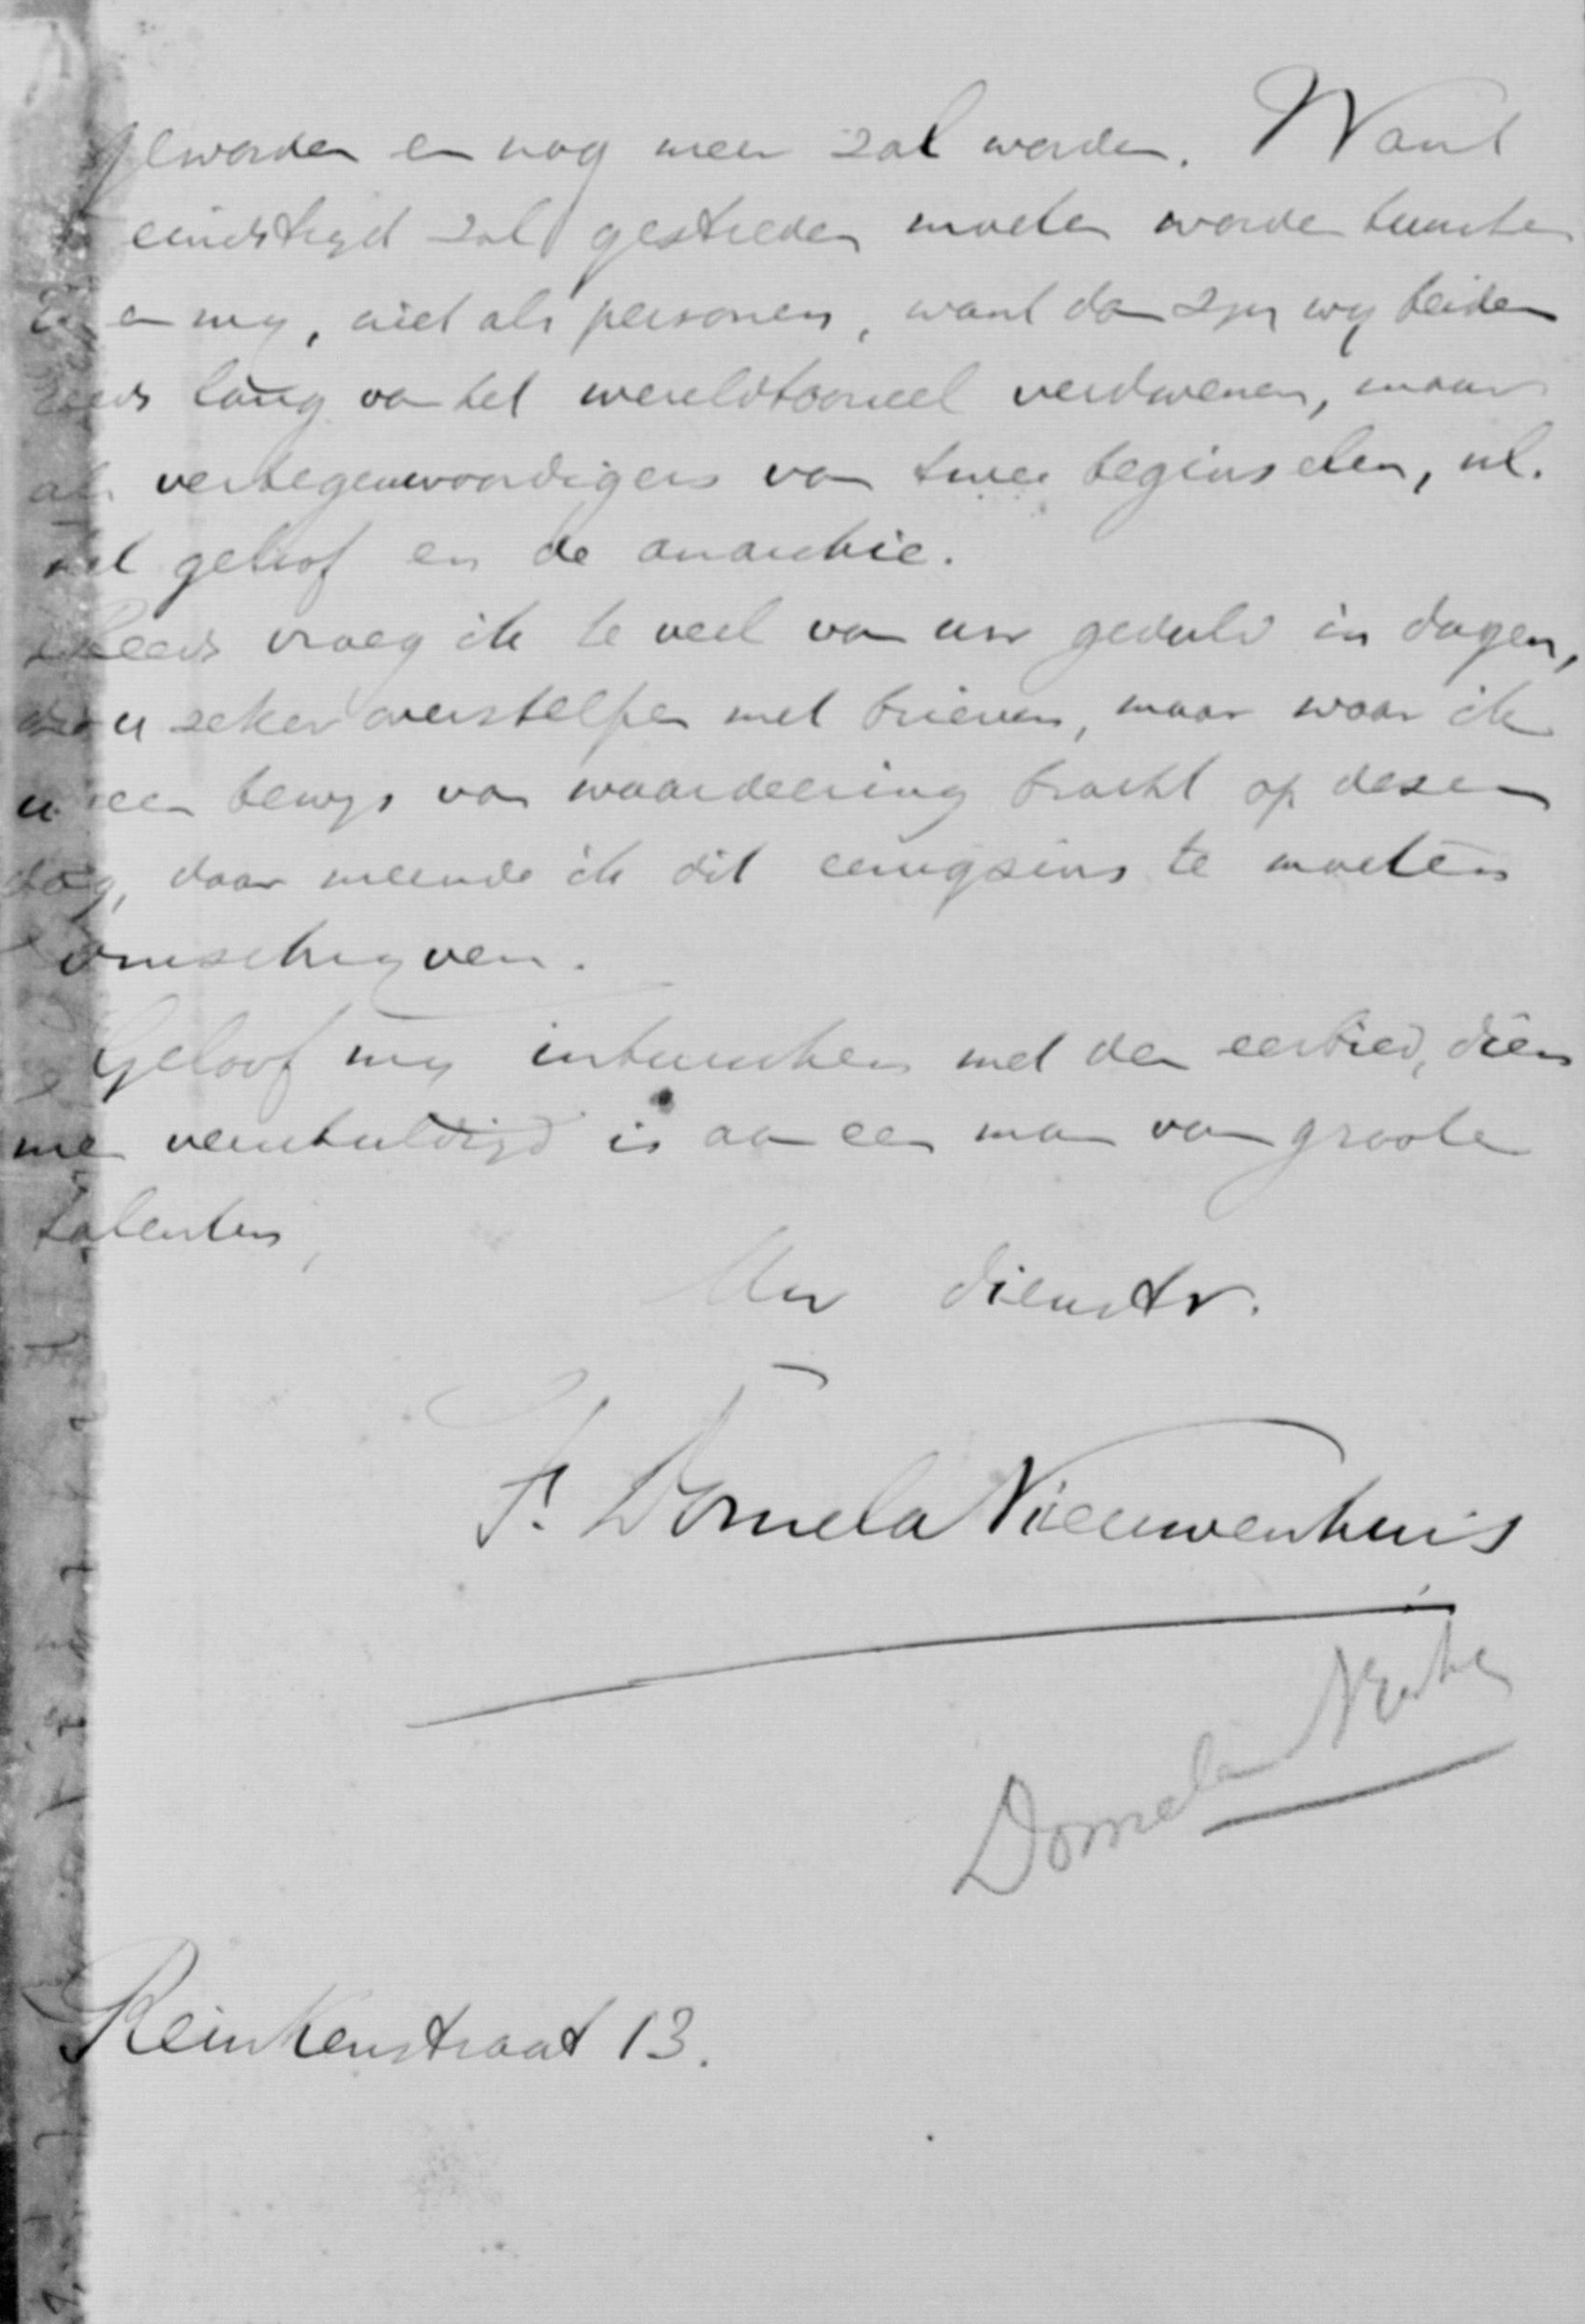 geworden en nog meer zal worden. Want
eindstrijd zal gestreden moeten worden tusschen
en mij, niet als personen, want dan zijn wij beiden
reeds lang van het wereldtooneel verdwenen, maar
als vertegenwoordigers van twee beginselen, nl.
het geloof en de anarchie.
Reeds vroeg ik te veel van uw geduld in dagen,
u zeker overstelpen met brieven, maar waar ik
u een bewijs van waardeering bracht op dezen
dag, daar meende ik dit eenigszins te moeten
omschrijven.
Geloof mij intusschen met den eerbied, dien
men verschuldigd is aan een man van groote
talenten,
Uw dienstv.
F. Domela Nieuwenhuis
Domela
Reinkenstraat 13.